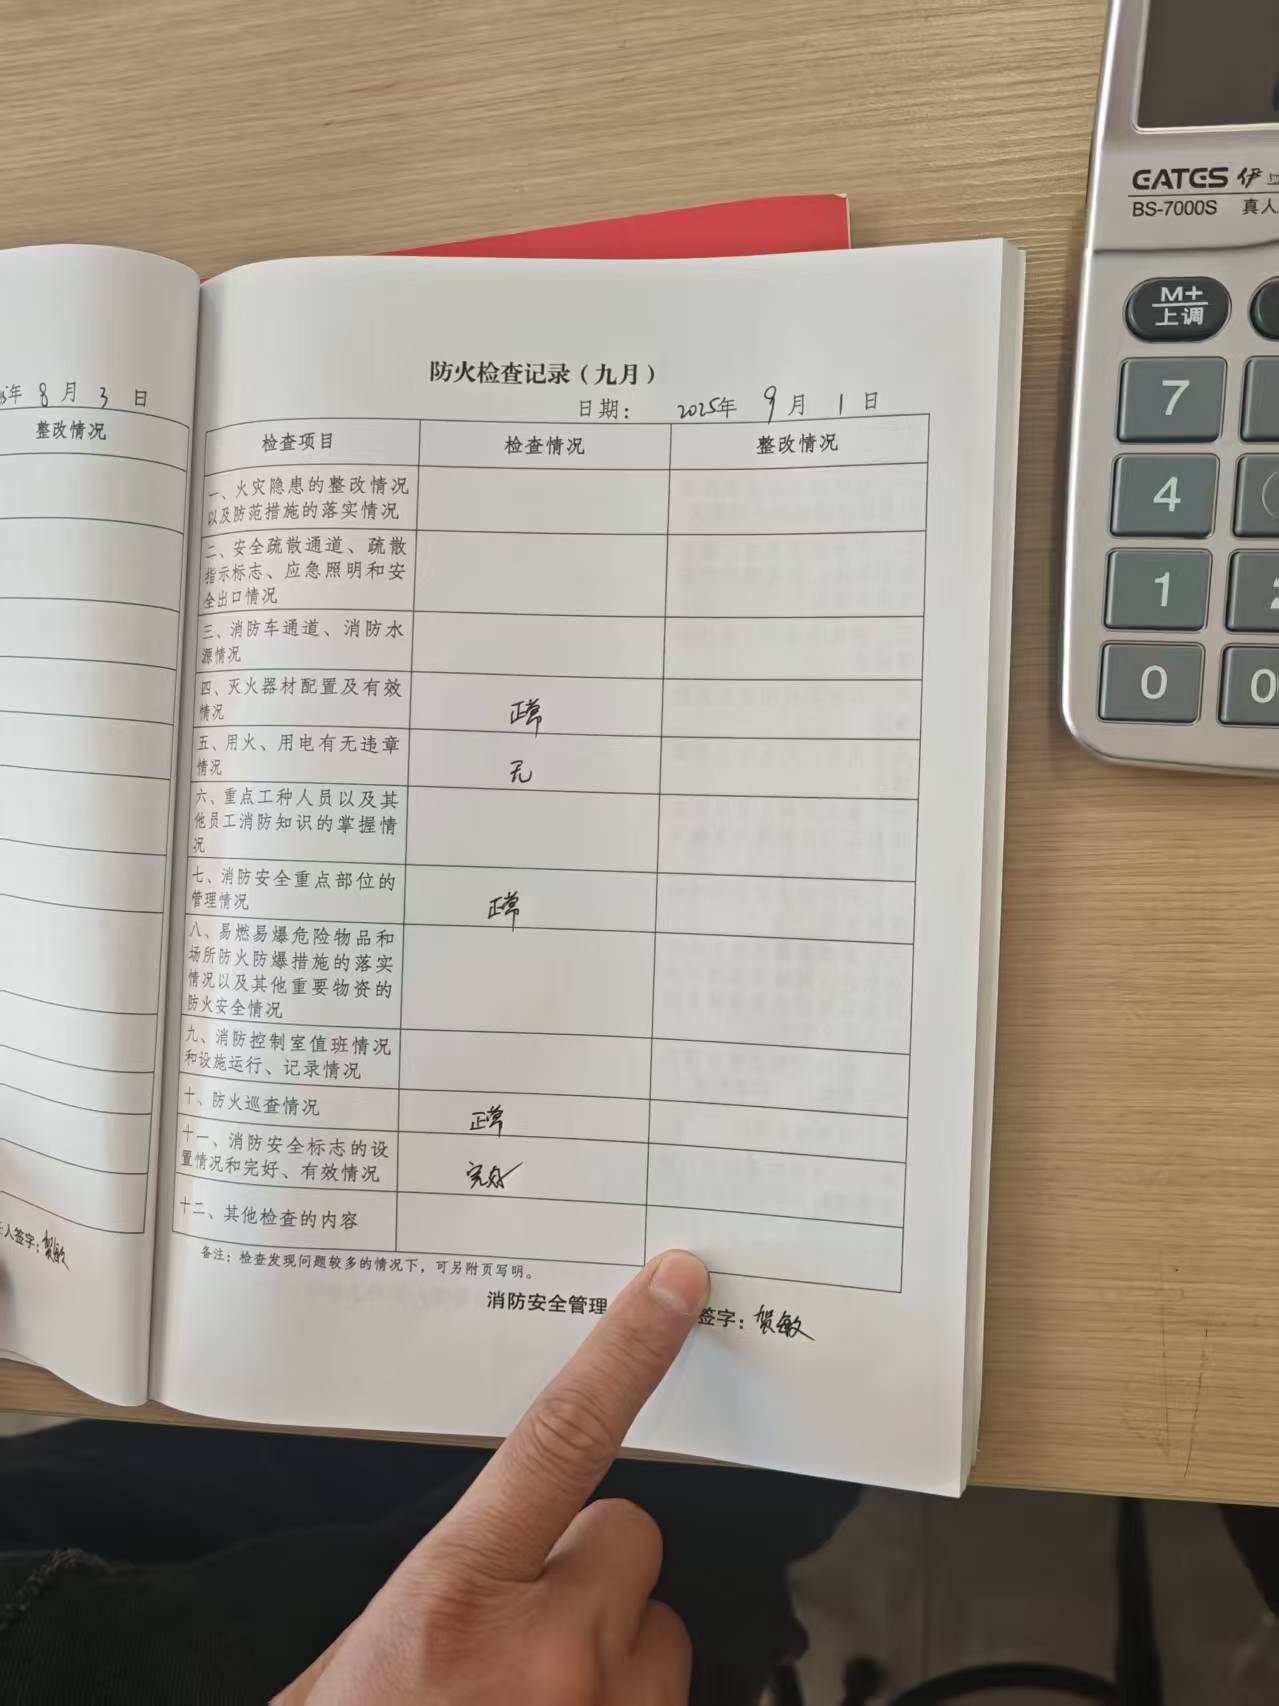 年 8 月 3 日
整改情况
人签字：贺敏
防火检查记录（九月）
日期： 2025年 9 月 1 日
检查项目 检查情况 整改情况
一、火灾隐患的整改情况
以及防范措施的落实情况
二、安全疏散通道、疏散
指示标志、应急照明和安
全出口情况
三、消防车通道、消防水
源情况
四、灭火器材配置及有效
情况 正常
五、用火、用电有无违章
情况 无
六、重点工种人员以及其
他员工消防知识的掌握情
况
七、消防安全重点部位的
管理情况 正常
八、易燃易爆危险物品和
场所防火防爆措施的落实
情况以及其他重要物资的
防火安全情况
九、消防控制室值班情况
和设施运行、记录情况
十、防火巡查情况 正常
十一、消防安全标志的设
置情况和完好、有效情况 完好
十二、其他检查的内容
备注：检查发现问题较多的情况下，可另附页写明。
消防安全管理 签字：贺敏
EATES 伊
BS-7000S 真人
M+
上调
7
4
1
0 0